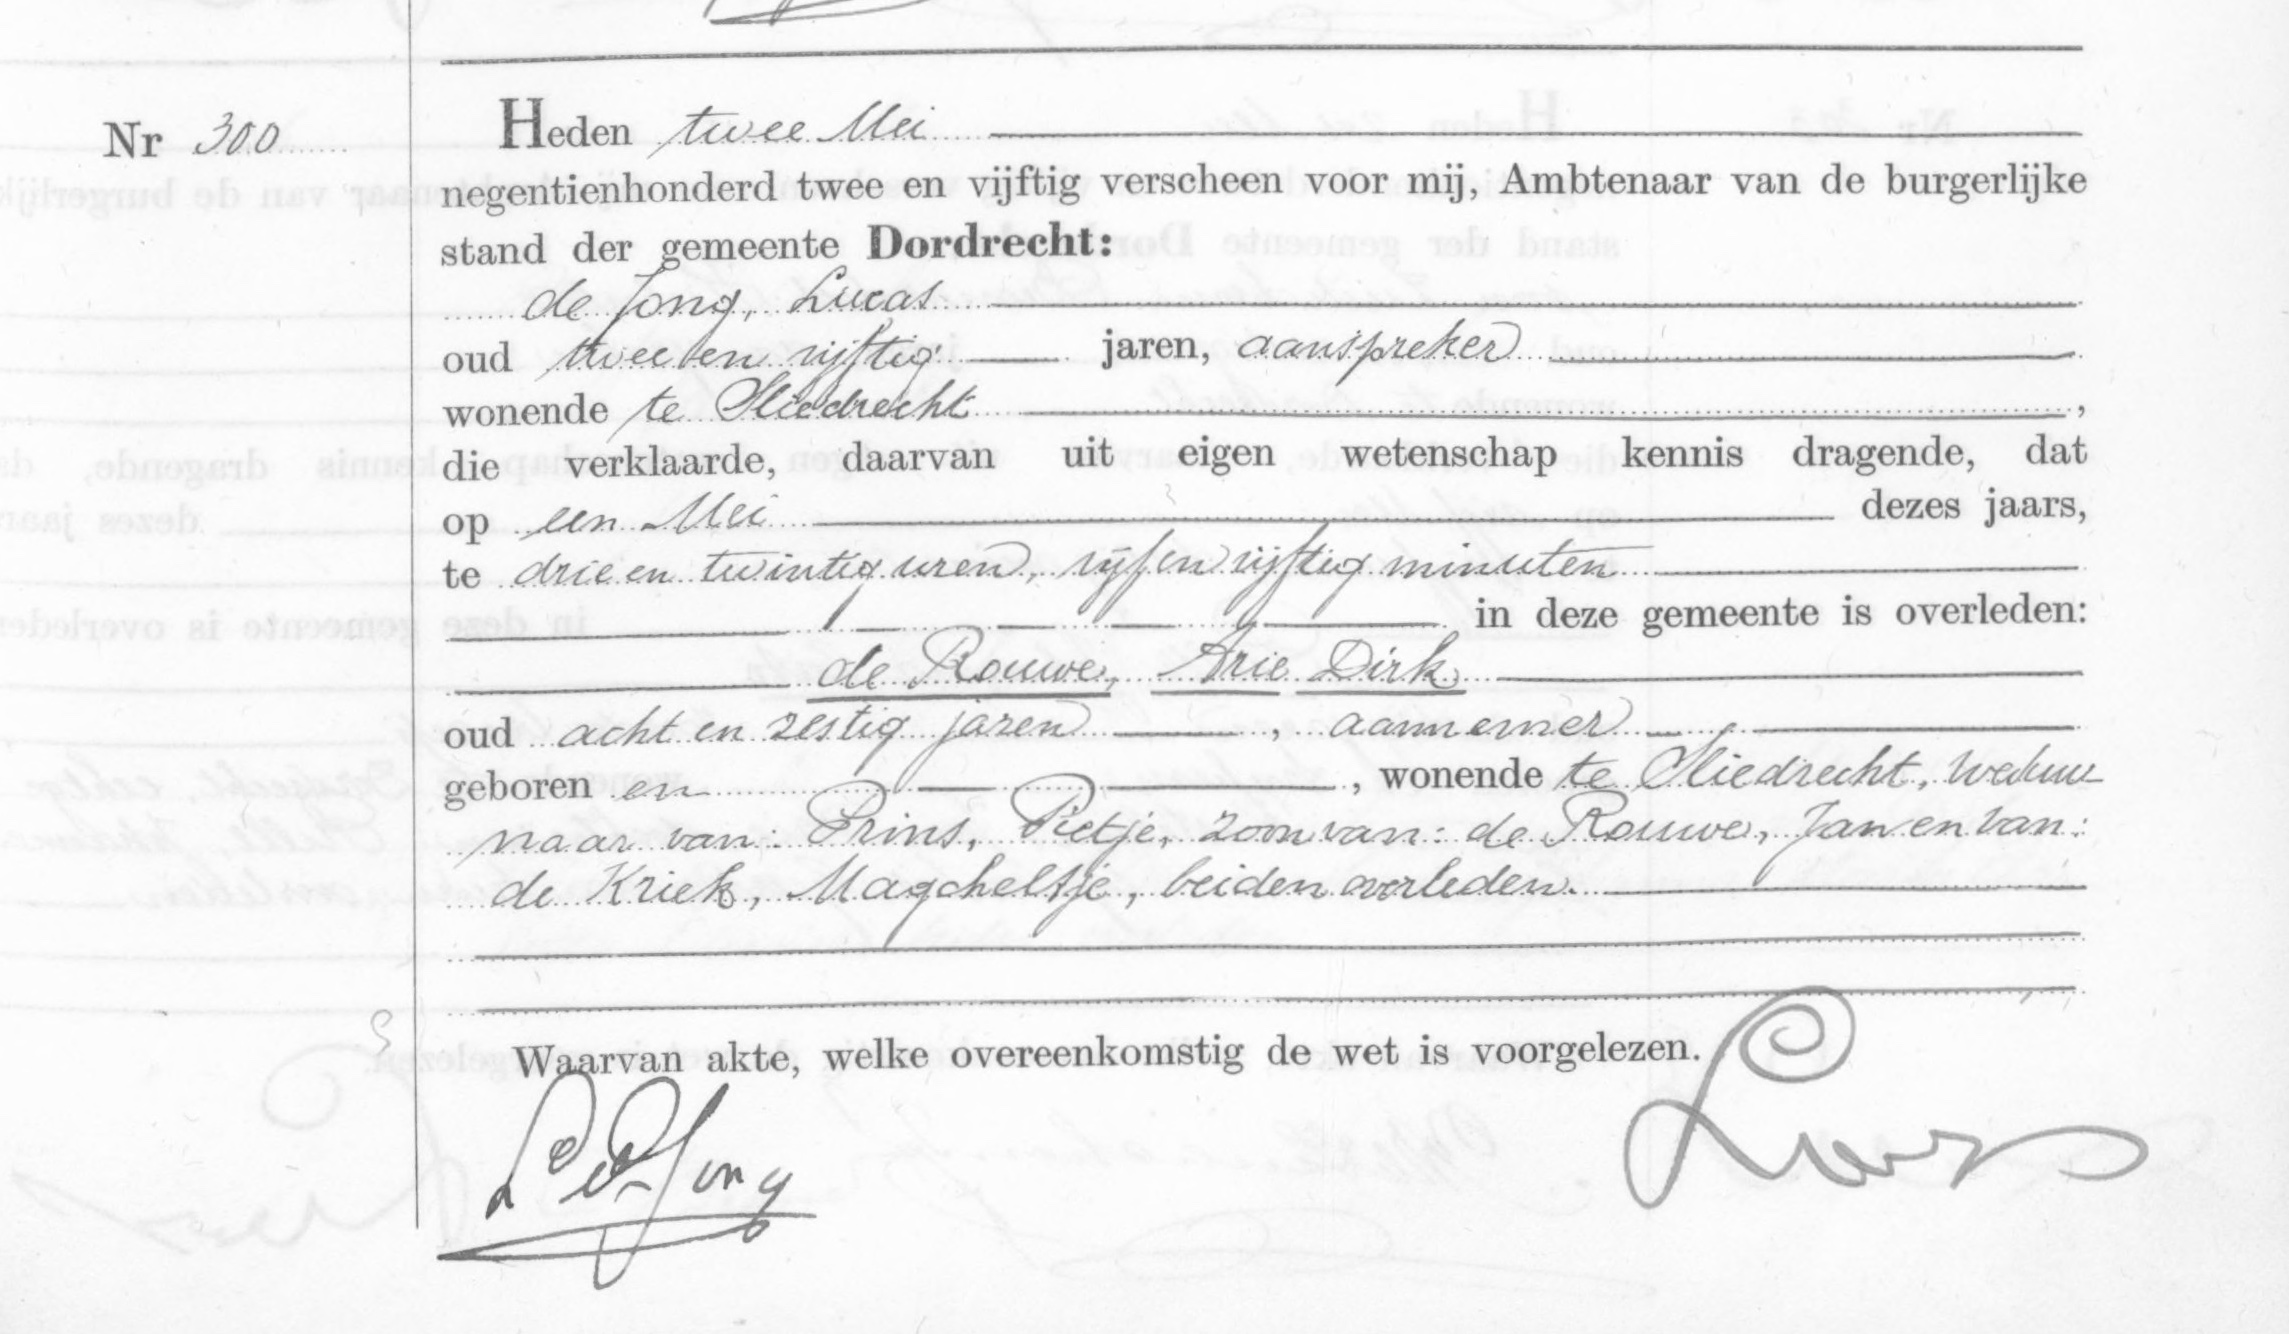 Nr 300
Heden twee Mei
negentienhonderd twee en vijftig verscheen voor mij, Ambtenaar van de burgerlijke
stand der gemeente Dordrecht:
de Jong, Lucas
oud twee en vijftig jaren, aanspreker
wonende te Sliedrecht,
die verklaarde, daarvan uit eigen wetenschap kennis dragende, dat
op een Mei dezes jaars,
te drie en twintig uren, vijf en vijftig minuten
in deze gemeente is overleden:
de Rouwe, Arie Dirk
oud acht en zestig jaren, aannemer
geboren en, wonende te Sliedrecht, weduw
naar van: Prins, Pietje, zoon van: de Rouwe, Jan en van:
de Kriek, Magcheltje, beiden overleden.
Waarvan akte, welke overeenkomstig de wet is voorgelezen.
L de Jong